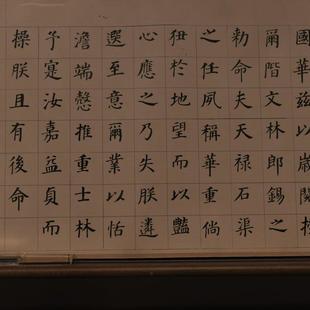 國華茲以歲閱
爾階文林郎錫之
勅命夫天禄石渠
之任夙稱華重倘
狃於地望而以豔
心應之乃失朕遴
選至意爾業以恬
澹端慤推重士林
予寔汝嘉益貞而
操朕且有後命